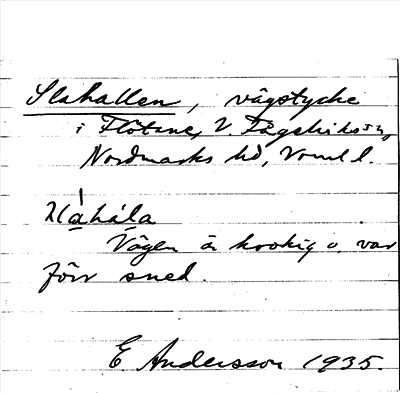 Slahallen, vägstycke
i Flötane, V. Fågelviks sn,
Nordmarks hd, Vrml l.
Slàhála
Vägen är krokig o. var
förr sned.
E. Andersson 1935.